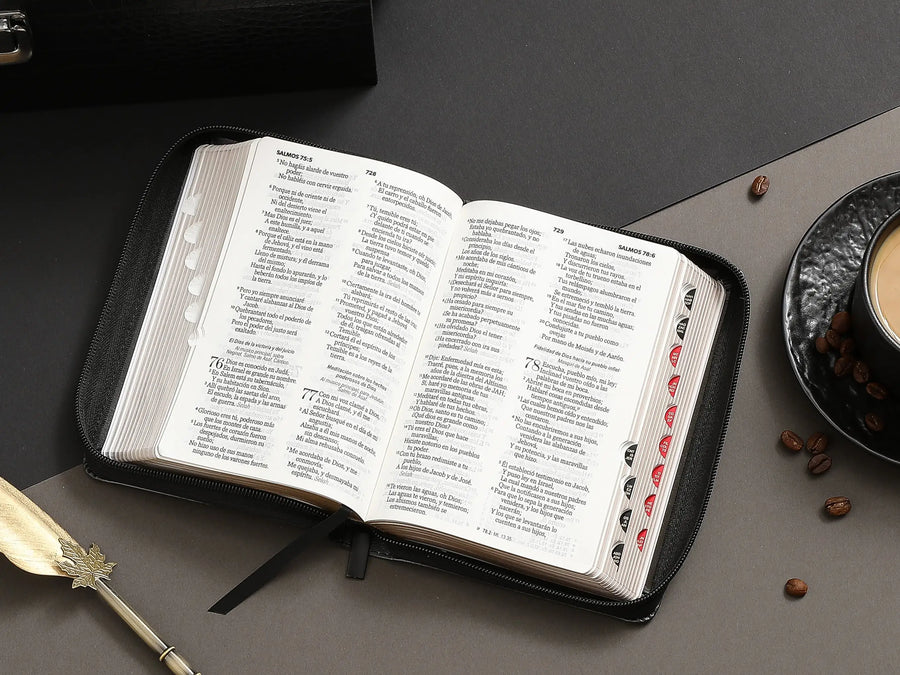 SALMOS 75:5
728
⁵ No hagáis alarde de vuestro
poder;
No habléis con cerviz erguida.
⁶ Porque ni de oriente ni de
occidente,
Ni del desierto viene el
enaltecimiento.
⁷ Mas Dios es el juez;
A este humilla, y a aquel
enaltece.
⁸ Porque el cáliz está en la mano
de Jehová, y el vino está
fermentado,
Lleno de mistura; y él derrama
del mismo;
Hasta el fondo lo apurarán, y lo
beberán todos los impíos de
la tierra.
⁹ Pero yo siempre anunciaré
Y cantaré alabanzas al Dios
de Jacob.
¹⁰ Quebrantaré todo el poderío de
los pecadores,
Pero el poder del justo será
exaltado.
El Dios de la victoria y del juicio
Al músico principal; sobre
Neginot. Salmo de Asaf. Cántico.
76 Dios es conocido en Judá;
En Israel es grande su nombre.
² En Salem está su tabernáculo,
Y su habitación en Sion.
³ Allí quebró las saetas del arco,
El escudo, la espada y las armas
de guerra. Selah
⁴ Glorioso eres tú, poderoso más
que los montes de caza.
⁵ Los fuertes de corazón fueron
despojados, durmieron su
sueño;
No hizo uso de sus manos
ninguno de los varones fuertes.
⁶ A tu reprensión, oh Dios de Jacob,
El carro y el caballo fueron
entorpecidos.
⁷ Tú, temible eres tú;
¿Y quién podrá estar en pie
delante de ti cuando se
encienda tu ira?
⁸ Desde los cielos hiciste oír juicio;
La tierra tuvo temor y quedó
suspensa
⁹ Cuando te levantaste, oh Dios,
para juzgar,
Para salvar a todos los mansos
de la tierra. Selah
¹⁰ Ciertamente la ira del hombre te
alabará;
Tú reprimirás el resto de las iras.
¹¹ Prometed, y pagad a Jehová
vuestro Dios;
Todos los que están alrededor
de él, traigan ofrendas al
Temible.
¹² Cortará él el espíritu de los
príncipes;
Temible es a los reyes de la
tierra.
Meditación sobre los hechos
poderosos de Dios
Al músico principal; para Jedutún.
Salmo de Asaf.
77 Con mi voz clamé a Dios,
A Dios clamé, y él me
escuchará.
² Al Señor busqué en el día de mi
angustia;
Alzaba a él mis manos de noche,
sin descanso;
Mi alma rehusaba consuelo.
³ Me acordaba de Dios, y me
conmovía;
Me quejaba, y desmayaba mi
espíritu. Selah
729
SALMOS 78:6
⁴ No me dejabas pegar los ojos;
Estaba yo quebrantado, y no
hablaba.
⁵ Consideraba los días desde el
principio,
Los años de los siglos.
⁶ Me acordaba de mis cánticos de
noche;
Meditaba en mi corazón,
Y mi espíritu inquiría:
⁷ ¿Desechará el Señor para siempre,
Y no volverá más a sernos
propicio?
⁸ ¿Ha cesado para siempre su
misericordia?
¿Se ha acabado perpetuamente
su promesa?
⁹ ¿Ha olvidado Dios el tener
misericordia?
¿Ha encerrado con ira sus
piedades? Selah
¹⁰ Dije: Enfermedad mía es esta;
Traeré, pues, a la memoria los
años de la diestra del Altísimo.
¹¹ Me acordaré de las obras de JAH;
Sí, haré yo memoria de tus
maravillas antiguas.
¹² Meditaré en todas tus obras,
Y hablaré de tus hechos.
¹³ Oh Dios, santo es tu camino;
¿Qué dios es grande como
nuestro Dios?
¹⁴ Tú eres el Dios que hace
maravillas;
Hiciste notorio en los pueblos
tu poder.
¹⁵ Con tu brazo redimiste a tu
pueblo,
A los hijos de Jacob y de José.
Selah
¹⁶ Te vieron las aguas, oh Dios;
Las aguas te vieron, y temieron;
Los abismos también se
estremecieron.
¹⁷ Las nubes echaron inundaciones
de aguas;
Tronaron los cielos,
Y discurrieron tus rayos.
¹⁸ La voz de tu trueno estaba en el
torbellino;
Tus relámpagos alumbraron el
mundo;
Se estremeció y tembló la tierra.
¹⁹ En el mar fue tu camino,
Y tus sendas en las muchas aguas;
Y tus pisadas no fueron
conocidas.
²⁰ Condujiste a tu pueblo como
ovejas
Por mano de Moisés y de Aarón.
Fidelidad de Dios hacia su pueblo infiel
Masquil de Asaf.
78 Escucha, pueblo mío, mi ley;
Inclinad vuestro oído a las
palabras de mi boca.
² Abriré mi boca en proverbios;
Hablaré cosas escondidas desde
tiempos antiguos,
³ Las cuales hemos oído y entendido;
Que nuestros padres nos las
contaron.
⁴ No las encubriremos a sus hijos,
Contando a la generación
venidera las alabanzas de
Jehová,
Y su potencia, y las maravillas
que hizo.
⁵ Él estableció testimonio en Jacob,
Y puso ley en Israel,
La cual mandó a nuestros padres
Que la notificasen a sus hijos;
⁶ Para que lo sepa la generación
venidera, y los hijos que
nacerán;
Y los que se levantarán lo
cuenten a sus hijos,
78.2: Mt. 13.35.